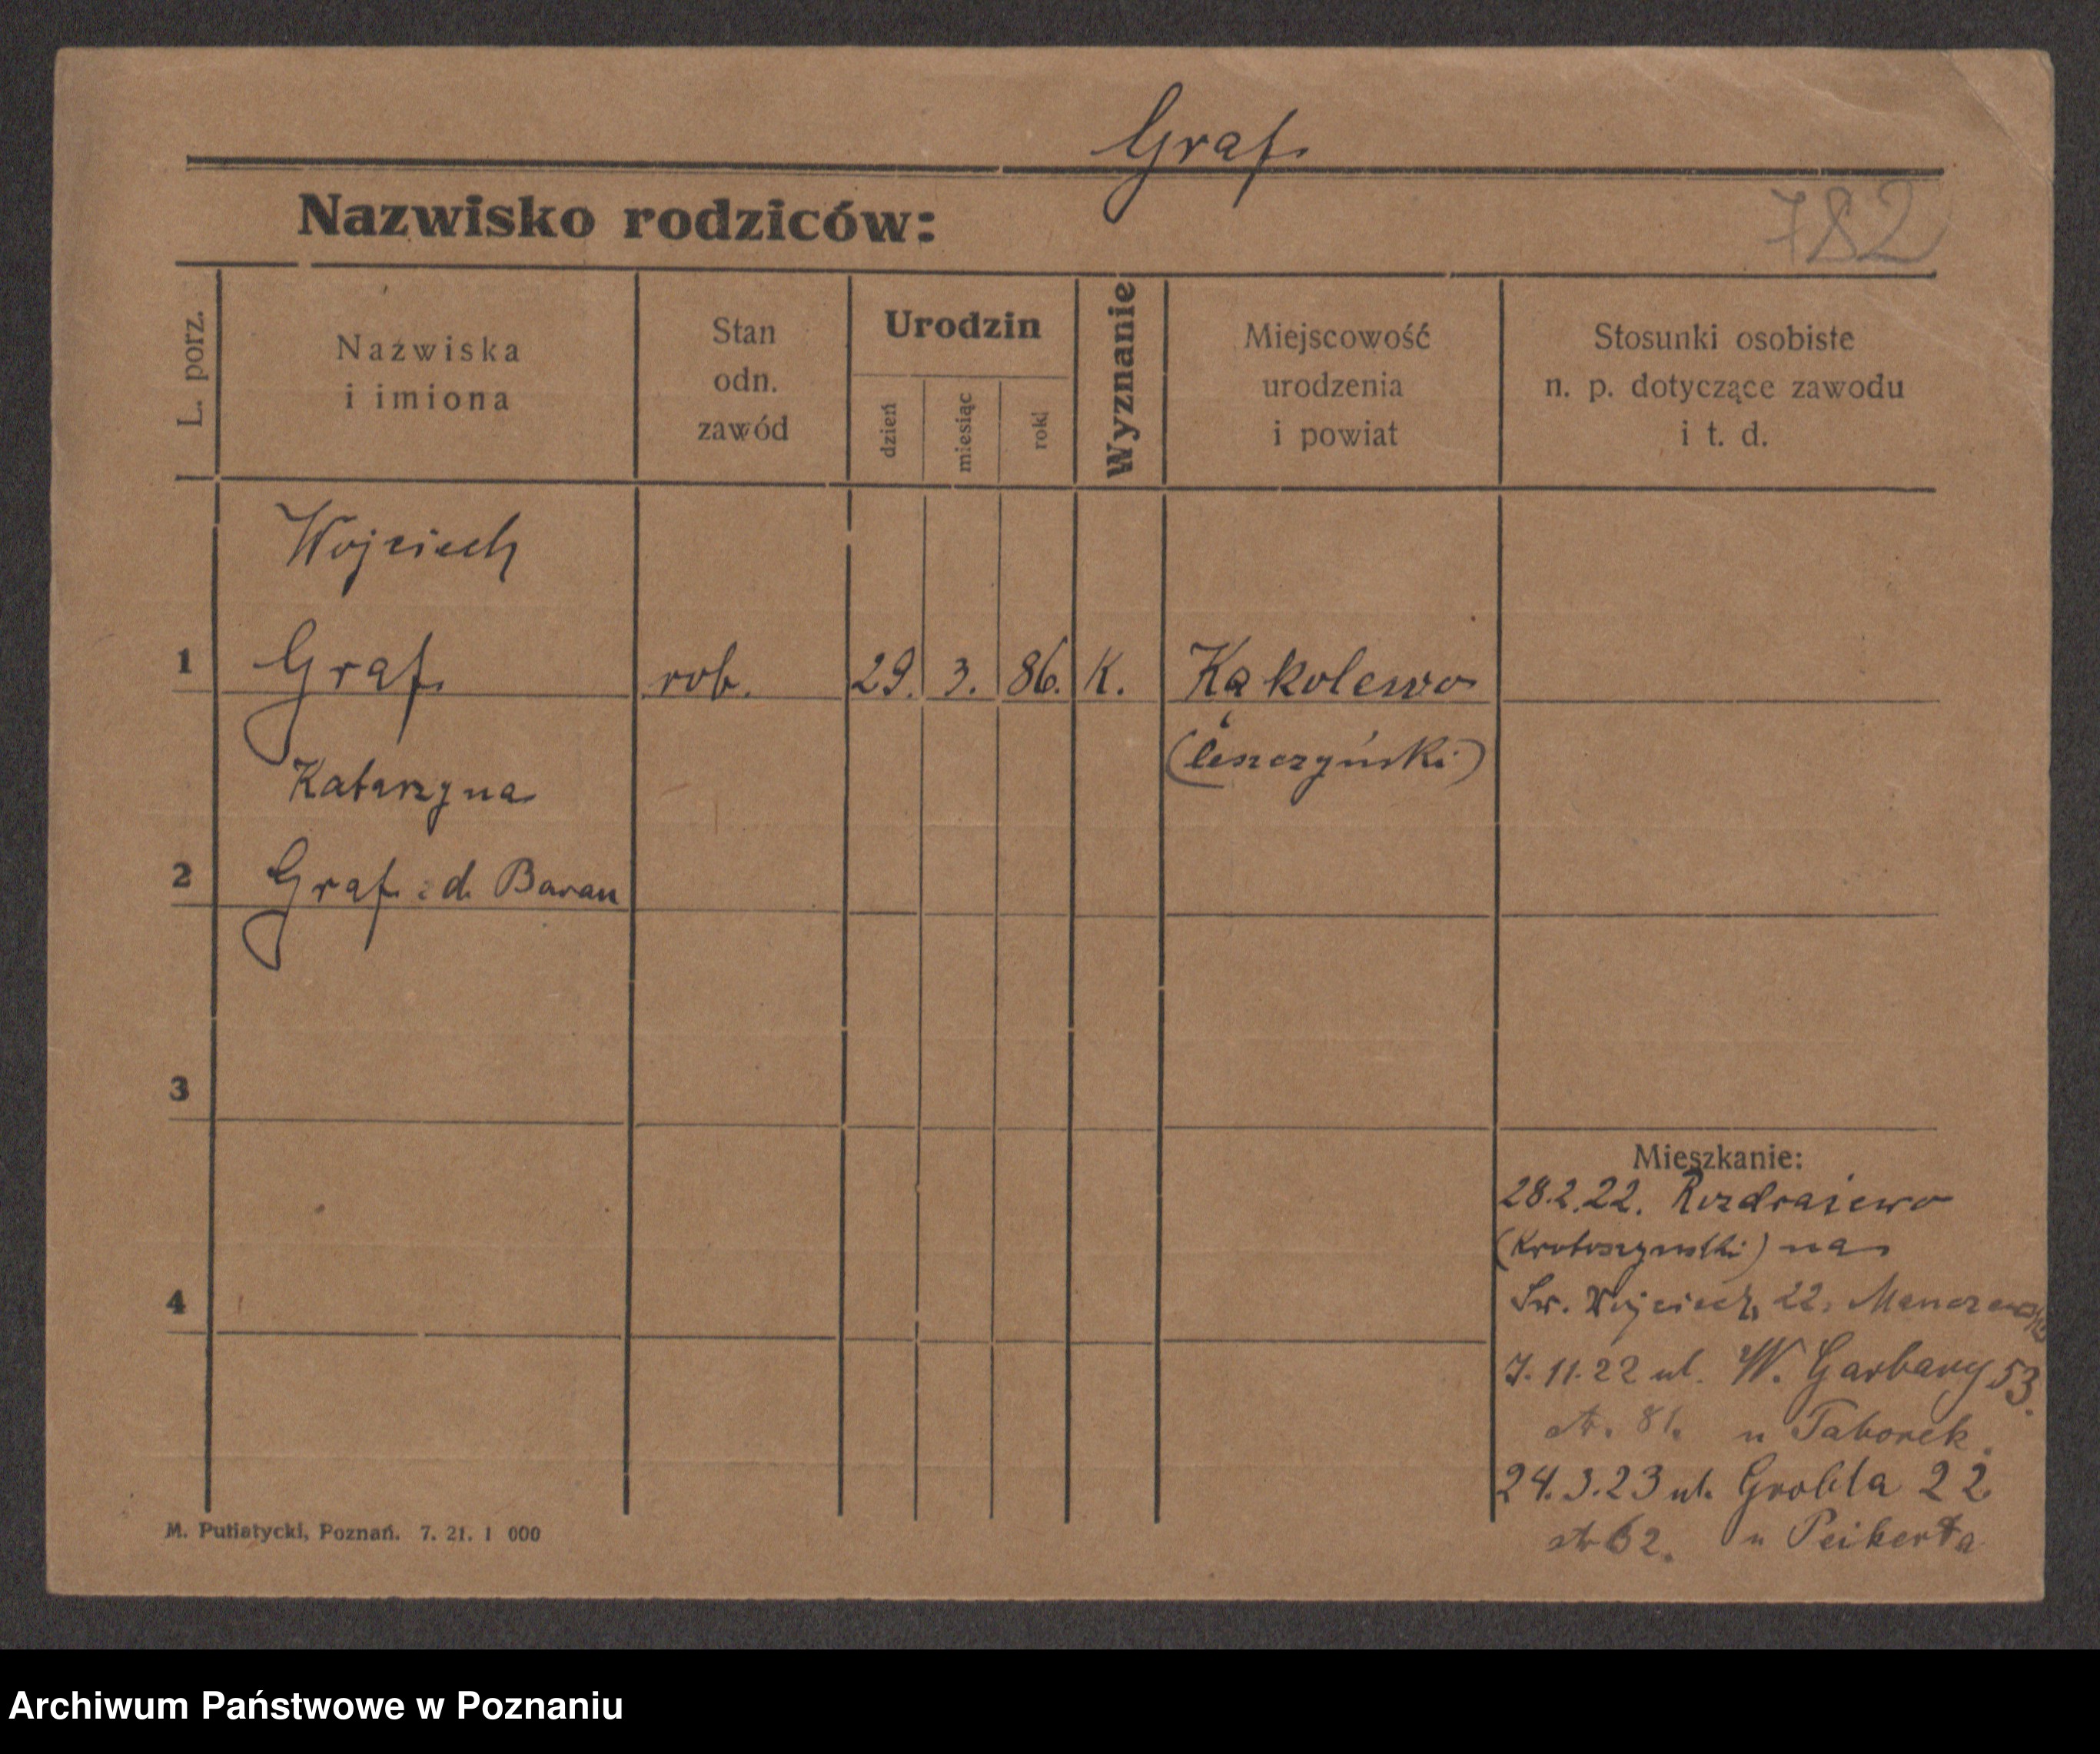 Graf
Nazwisko rodziców:
782
L. porz.
Nazwiska
i imiona
Stan
odn.
zawód
Urodzin
dzień
miesiąc
rok
Wyznanie
Miejscowość
urodzenia
i powiat
Stosunki osobiste
n. p. dotyczące zawodu
i t. d.
Wojciech
1 Graf rob. 29. 3. 86. K. Kąkolewo
(leszczyński)
Katarzyna
2 Graf z d. Baran
3
Mieszkanie:
28.2.22. Rozdrażewo
(Krotoszyński) na
4
Św. Wojciech, 22,
7.11.22 ul. W. Garbary 53.
str. 81. u Taborek.
24.3.23 ul. Grobla 22
str 62. u Peikerta
M. Putiatycki, Poznań. 7. 21. 1 000
Archiwum Państwowe w Poznaniu